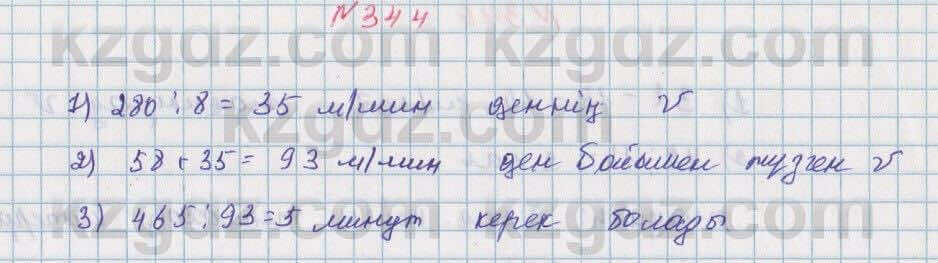 №344
1) 280 : 8 = 35 м/мин деннің v
2) 58 + 35 = 93 м/мин ден бойымен жүзген v
3) 465 : 93 = 5 минут керек болады.
kzgdz.com kzgdz.com